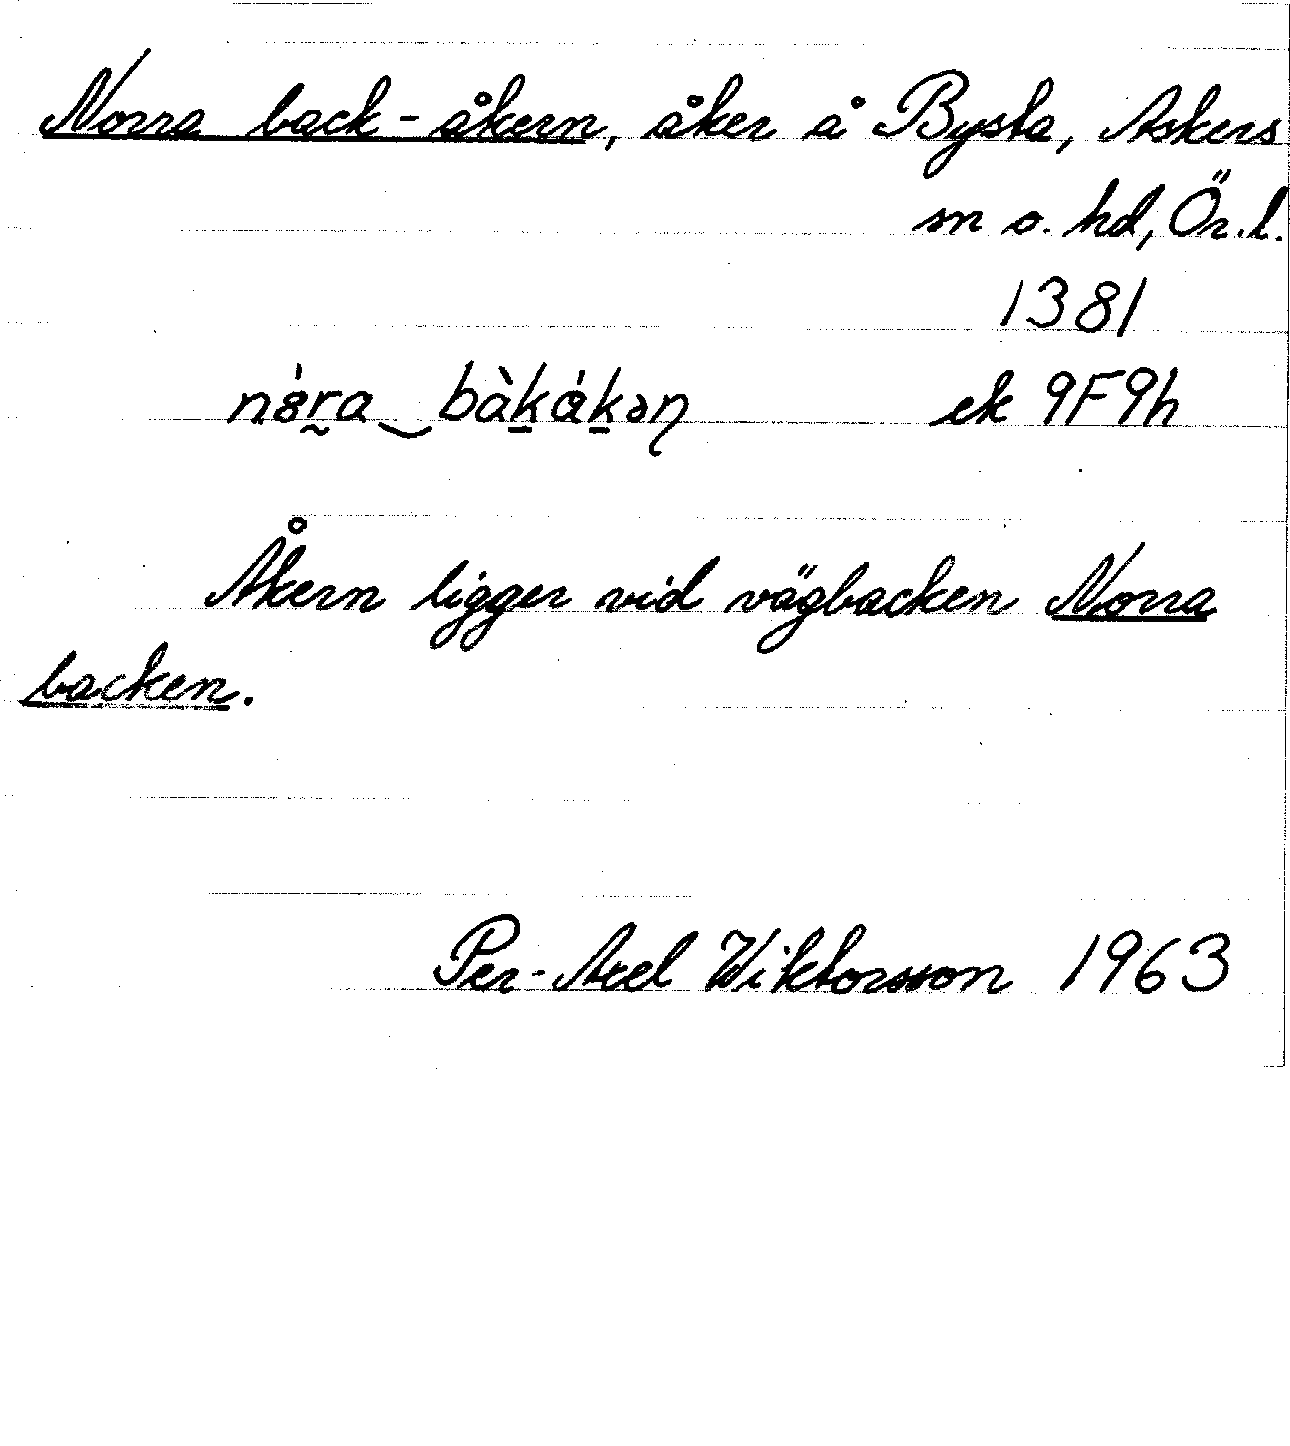 Norra back-åkern, åker å Bysta, Askers
sn o. hd, Ör.l.
1381
nȯ́ra‿bàkákən ek 9F9h
Åkern ligger vid vägbacken Norra
backen.
Per-Axel Wiktorsson 1963